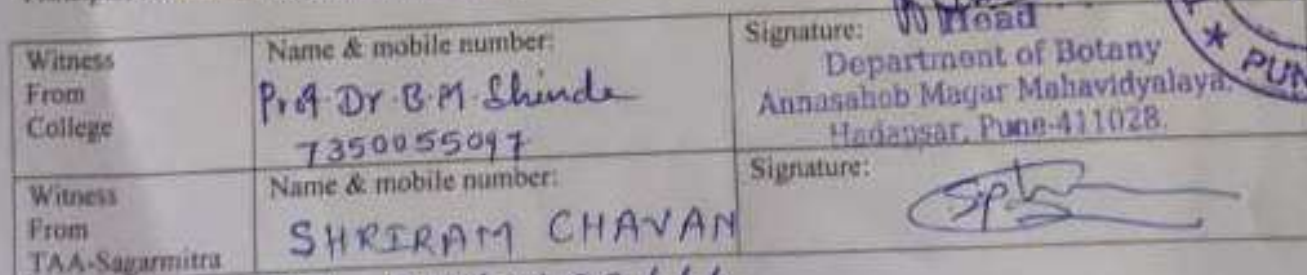 Witness
From
College
Name & mobile number:
Prof. Dr. B. M. Shinde
7350055097
Signature:
Head
Department of Botany
Annasaheb Magar Mahavidyalaya,
Hadapsar, Pune-411028.
PUN
Witness
From
TAA-Sagarmitra
Name & mobile number:
SHRIRAM CHAVAN
Signature: